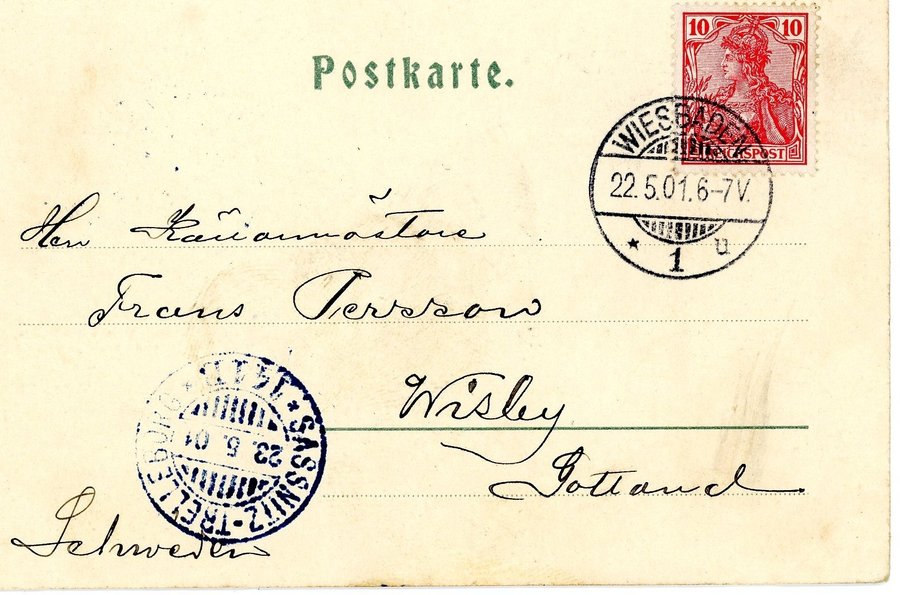 Postkarte.
10 10
REICHSPOST
WIESBADEN
22.5.01.6-7V.
* 1 u
Herr
Frans Persson
Wisby
Gotland
SASSNITZ-TRELLEBORG
23.5.01
Schweden